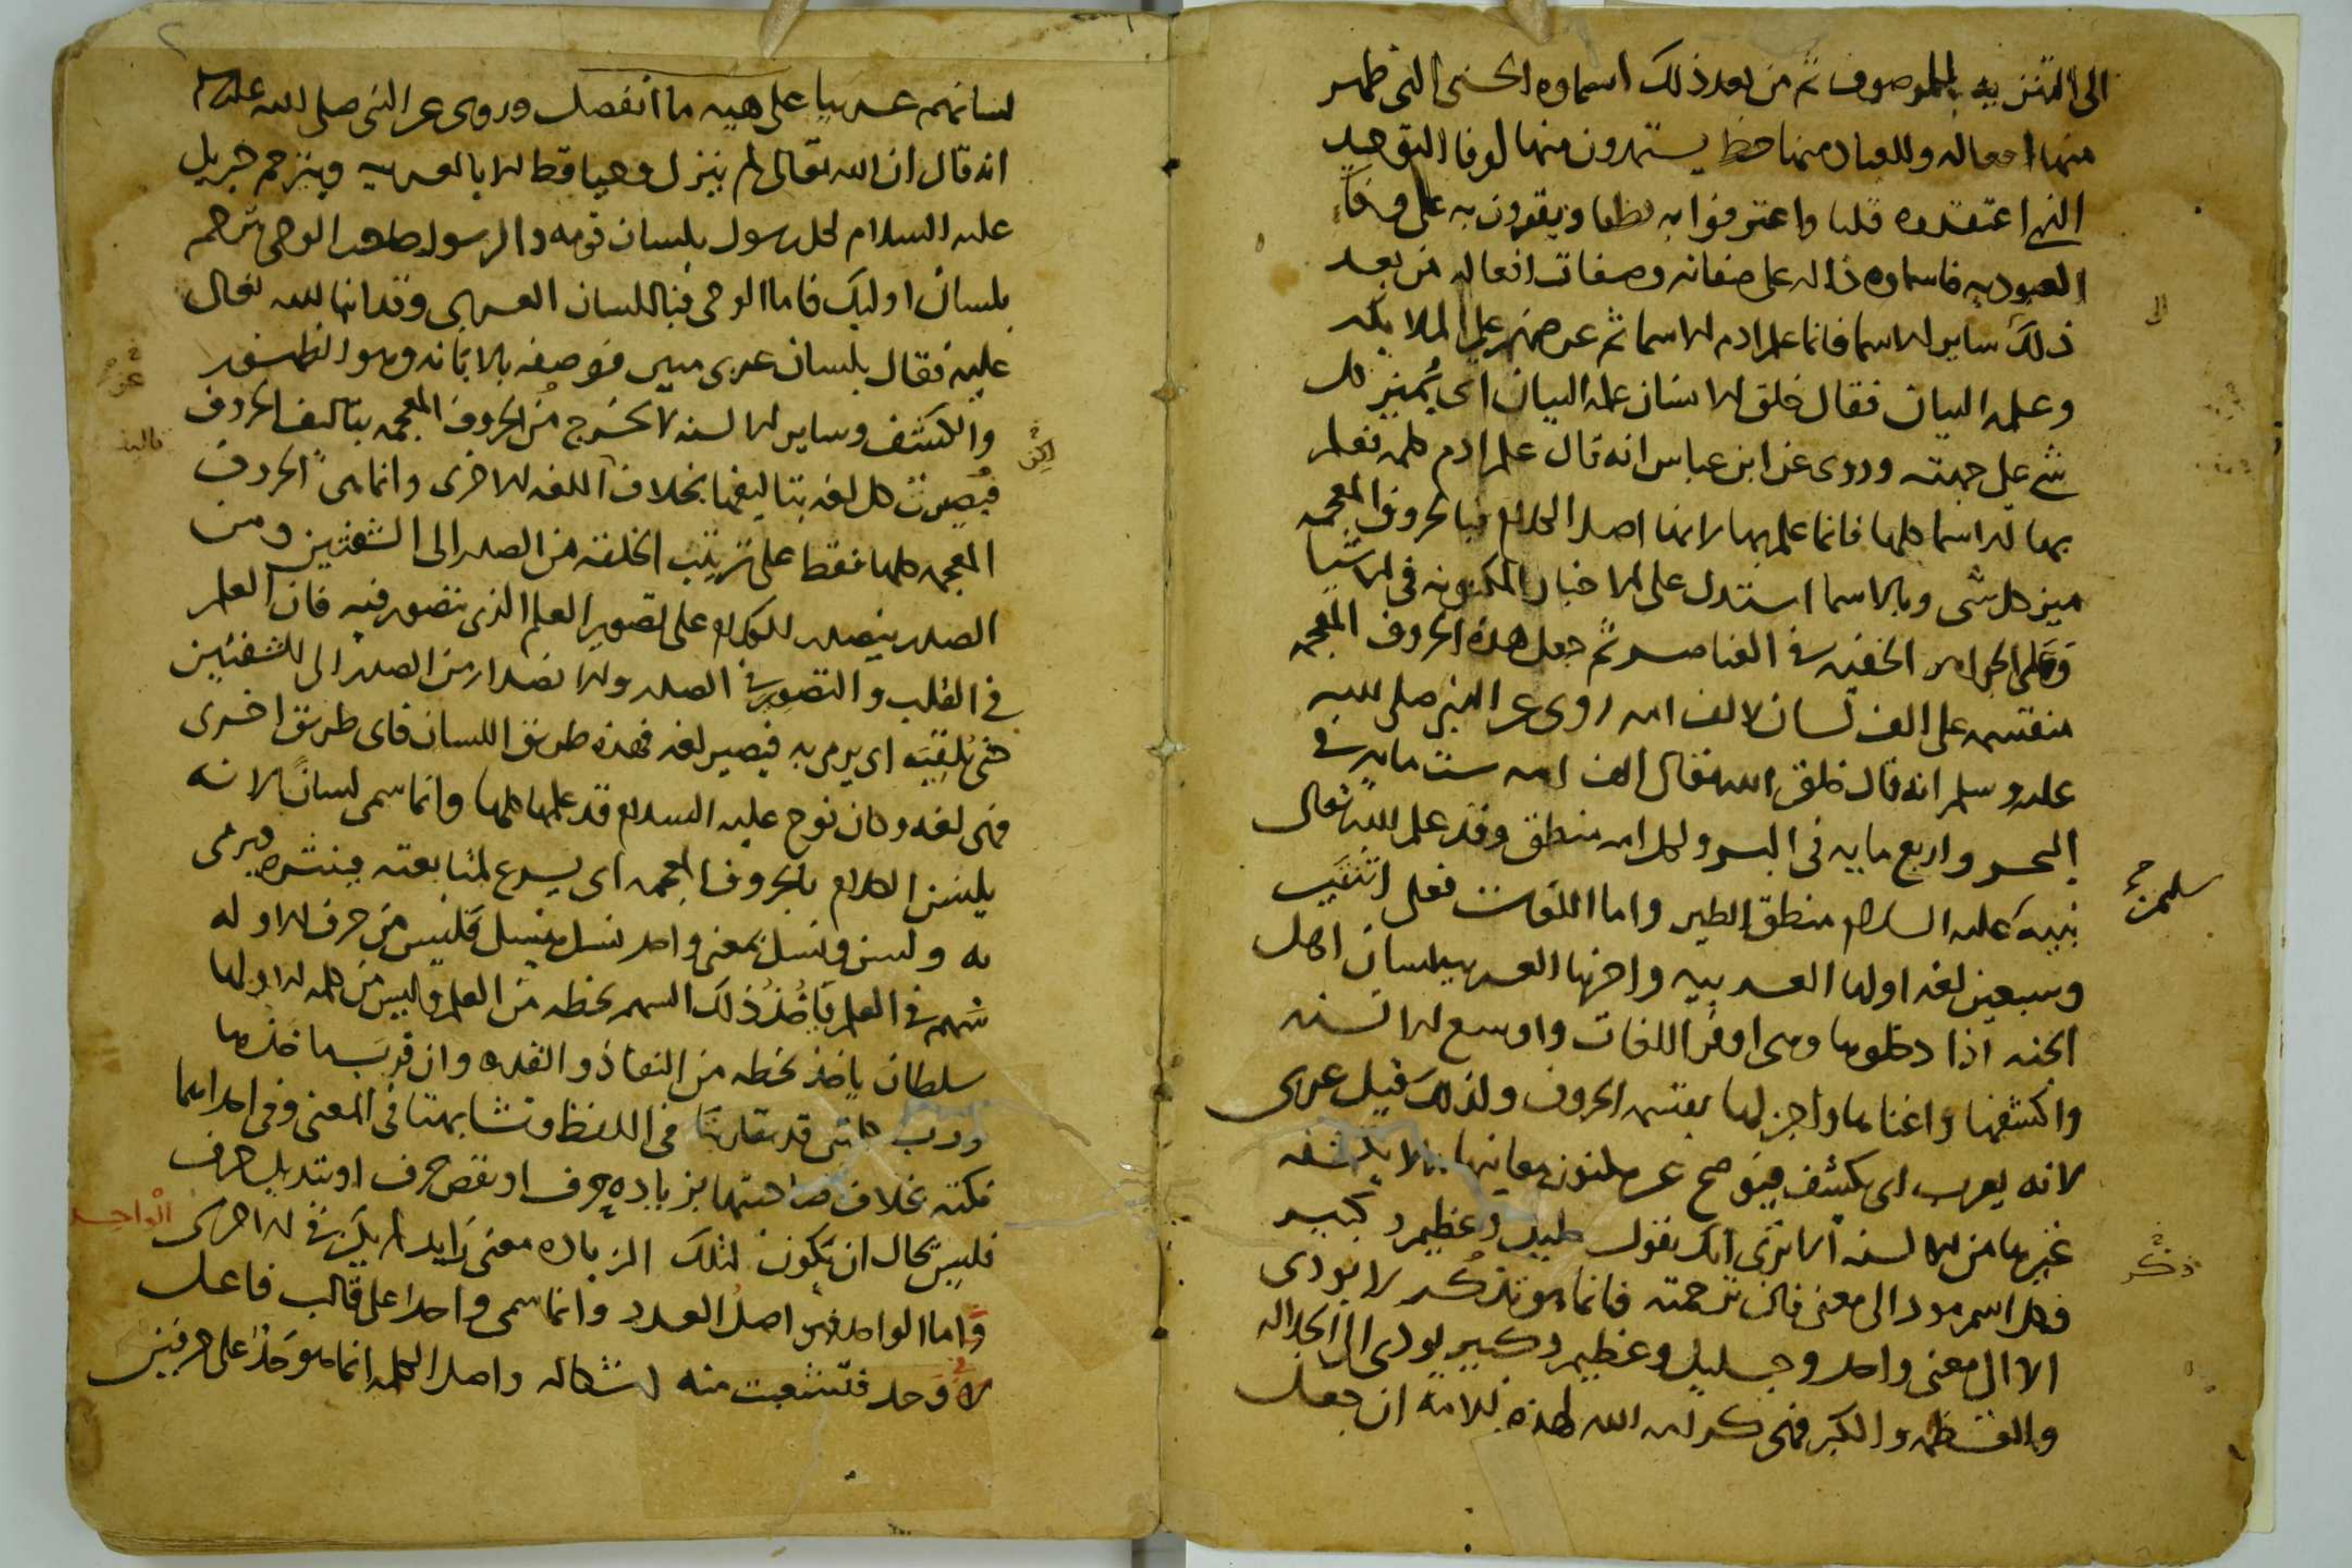 الى التنزيه للموصوف ثم من بعد ذلك اسماوه الحسنى التى ظهر
منها افعاله وللعباد منها حظ يستمدون منها لوفا التوحيد
الذى اعتقدوه قلبا واعترفوا به نطقا ويقومون به على وفا
العبوديه فاسماوه داله على صفاته وصفات افعاله من بعد
ذلك ساير الاسما فانما علم ادم الاسما ثم عرضهم على الملايكه
وعلمه البيان فقال خلق الانسان علمه البيان اى تمييز كل
شى على جهته وروى عن ابن عباس انه قال علم ادم كلمه تعلم
بها الاسما كلها فانما علم بها لانها اصل الكلام فبالحروف المعجمه
ميز كل شى وبالاسما استدل على الاخبار المكنونه فى الاشيا
وعلى الجواهر الخفيه فى العناصر ثم جعل هذه الحروف المعجمه
منقسمه على الف لسان لالف امه روى عن النبى صلى الله
عليه وسلم انه قال خلق الله تعالى الف امه ست مايه فى
البحر واربع مايه فى البر ولكل امه منطق وقد علم الله تعالى
نبيه عليه السلام منطق الطير واما اللغات فعلى اثنتين
سليمن
وسبعين لغه اولها العربيه واخرها العربيه لسان اهل
الجنه اذا دخلوها وهى اوفر اللغات واوسع الالسنه
واكشفها واغناها واجزلها بقسمه الحروف ولذلك قيل عربى
لانه يعرب اى يكشف فيوضح عن مكنون معانيها مالا يكشفه
غيرها من الالسنه الا ترى انك تقول جليل وعظيم وكبير
فكل اسم مود الى معنى فان ترجمته فانما هو تذكر لا يودى
ذكر
الا الى معنى واحد وجليل وعظيم وكبير يودى الى الجلاله
والعظمه والكبر فمن كرامه الله لهذه الامه ان جعل
لسانهم عربيا على هيه ما انفصل وروى عن النبى صلى الله عليه وسلم
انه قال ان الله تعالى لم ينزل وحيا قط الا بالعربيه ويترجم جبريل
عليه السلام لكل رسول بلسان قومه والرسول صاحب الوحى يترجم
بلسان اوليك فاما الوحى فباللسان العربى وقد انبا الله تعالى
عليه فقال بلسان عربى مبين فوصفه بالابانه وهو الظهور
والكشف وساير الالسنه لا تخرج من الحروف المعجمه بتاليف الحروف
تاليف
لكن
فصيرت كل لغه بتاليفها بخلاف اللغه الاخرى وانما هى الحروف
المعجمه كلها فقط على ترتيب الخلقه من الصدر الى الشفتين ومن
الصدر يتصدر الكلام على تصوير العلم الذى تصور فيه فان العلم
فى القلب والتصوير فى الصدر والاصدار من الصدر الى الشفتين
حتى تلقيه اى يرمى به فيصير لغه فهذه طريق اللسان فاى طريق اخرى
فهى لغه وكان نوح عليه السلام قد علمها كلها وانما سمى لسانا لانه
يلسن الكلام بالحروف المعجمه اى يسرع لمتابعته فينشره ويرمى
به ولسن ونسل بمعنى واحد نسل ينسل فليس من حرف الا وله
سهم فى العلم فاخذ ذلك السهم بحظه من العلم وليس من كلمه الا ولها
سلطان ياخذ بحظه من النفاذ والقدره وان قربت ماخذها
ورب كلمتين قد تقاربتا فى اللفظ وتشابهتا فى المعنى وفى احداهما
نكته بخلاف صاحبتها بزياده حرف او نقص حرف او بتبديل حرف
فليس بحال ان يكون لتلك الزياده معنى زايد لم يكن فى الاخرى
الواحد
واما الواحد فهو اصل العدد وانما سمى واحدا على قالب فاعل
لا وحد فتشعبت منه اشكاله واصل الكلمه انما هو حد على حرفين